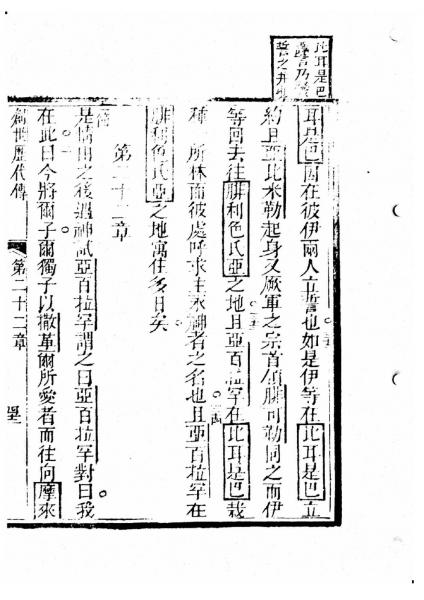 此耳是巴
譯言乃發
誓之井
耳是巴因在彼伊兩人立誓也如是伊等在此耳是巴立
約且亞比米勒起身又厥軍之宗首領腓可勒同之而伊
等回去往腓利色氏亞之地且亞百拉罕在此耳是巴栽
種一所林而彼處呼求主永神者之名也且亞百拉罕在
腓利色氏亞之地寓住多日矣
第二十二章
是情由之後過神試亞百拉罕謂之曰亞百拉罕對曰我
在此曰今將爾子爾獨子以撒革爾所愛者而往向摩來
創世歷代傳 第二十二章